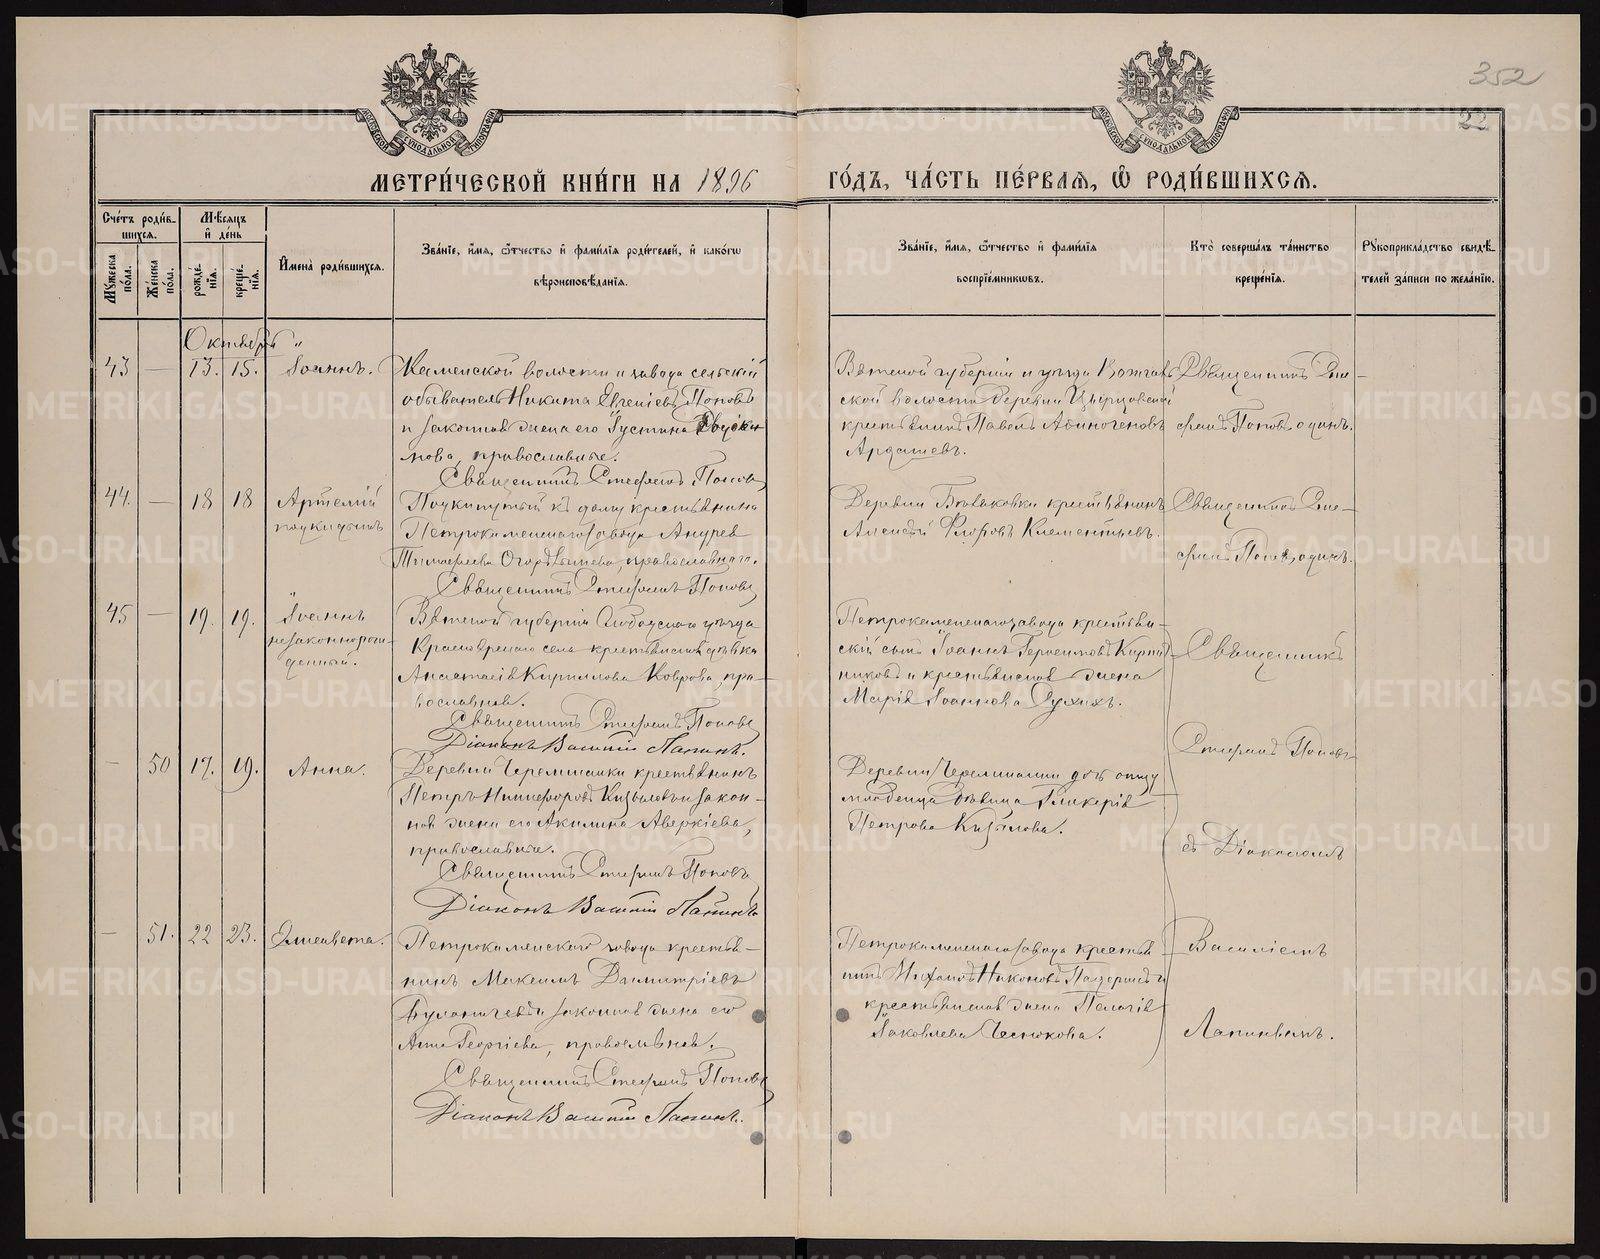 352
22
МОСКОВСКОЙ СѴНОДАЛЬНОЙ ТИПОГРАФІИ
МОСКОВСКОЙ СѴНОДАЛЬНОЙ ТИПОГРАФІИ
МЕТРИ́ЧЕСКОЙ КНИ́ГИ НА 1896 ГО́ДЪ, ЧА́СТЬ ПЕ́РВАЯ, Ѡ҆ РОДИ́ВШИХСЯ.
Сче́тъ роди́в-
шихся.
Мꙋжеска по́ла.
Же́нска по́ла.
Мѣ́сяцъ
и҆ де́нь
рожде́-
нїѧ.
креще́-
нїѧ.
И҆мена̀ роди́вшихся.
Зва́нїе, и҆́мя, ѻ҆́тчество и҆ фами́лїя роди́телей, и҆ како́гѡ
вѣроисповѣ́данїя.
Зва́нїе, и҆́мя, ѻ҆́тчество и҆ фами́лїя
воспрїе́мниковъ.
Кто̀ соверша́лъ та́инство
креще́нїя.
Рꙋкоприкла́дство свидѣ́-
телей за́писи по жела́нїю.
Октябрь
43 — 13. 15. Іоаннъ.
Каменской волости и завода сельскій
обыватель Никита Евгеніевъ Поповъ
и законная жена его Іустина
мова, православные.
Священникъ Стефанъ Поповъ
Вятской губерніи и уѣзда
ской волости деревни
крестьянинъ Павелъ Афиногеновъ
Ардашевъ.
Священникъ Сте-
фанъ Поповъ одинъ.
44. — 18 18 Артемій
подкидышъ
Подкинутый къ дому крестьянина
Петрокаменскаго завода Андрея
Тимофеева православнаго.
Священникъ Стефанъ Поповъ
Деревни крестьянинъ
Алексѣй Флоровъ Клементьевъ.
Священникъ Сте-
фанъ Поповъ одинъ.
45 — 19. 19. Іоаннъ
незаконнорож-
денный.
Вятской губерніи Слободского уѣзда
села крестьянская дѣвка
Анастасія Кириллова Коврова, пра-
вославная.
Священникъ Стефанъ Поповъ
Діаконъ Василій Лапинъ.
Петрокаменскаго завода крестьян-
скій сынъ Іоаннъ Герасимовъ
никовъ и крестьянская жена
Марія Іоаннова Сухихъ.
Священникъ
Стефанъ Поповъ
— 50 17. 19. Анна.
Деревни Черемшанки крестьянинъ
Петръ Никифоровъ Кизиловъ и закон-
ная жена его Акилина Аверкіева,
православные.
Священникъ Стефанъ Поповъ
Діаконъ Василій Лапинъ
Деревни Черемшанки дочь отцу
младенца дѣвица Гликерія
Петрова Кизилова.
съ Діакономъ
— 51. 22 23. Елисавета.
Петрокаменскаго завода крестья-
нинъ Максимъ Димитріевъ
и законная жена его
Анна Георгіева, православные.
Священникъ Стефанъ Поповъ
Діаконъ Василій Лапинъ.
Петрокаменскаго завода крестья-
нинъ Никоновъ и
крестьянская жена Пелагія
Іаковлева Чеснокова.
Василіемъ
Лапинымъ.
METRIKI.GASO-URAL.RU